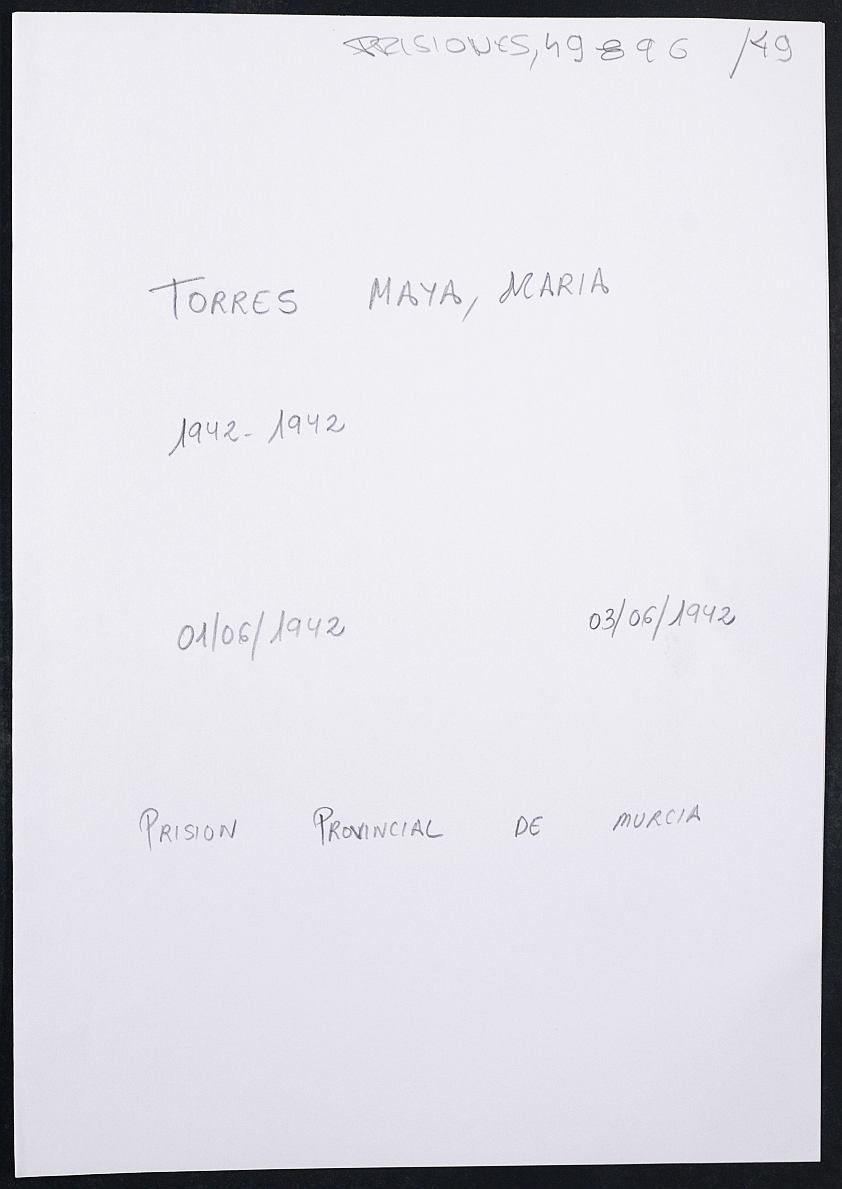 PRISIONES, 49896 /49
TORRES MAYA, MARIA
1942 - 1942
01/06/1942 03/06/1942
PRISION PROVINCIAL DE MURCIA